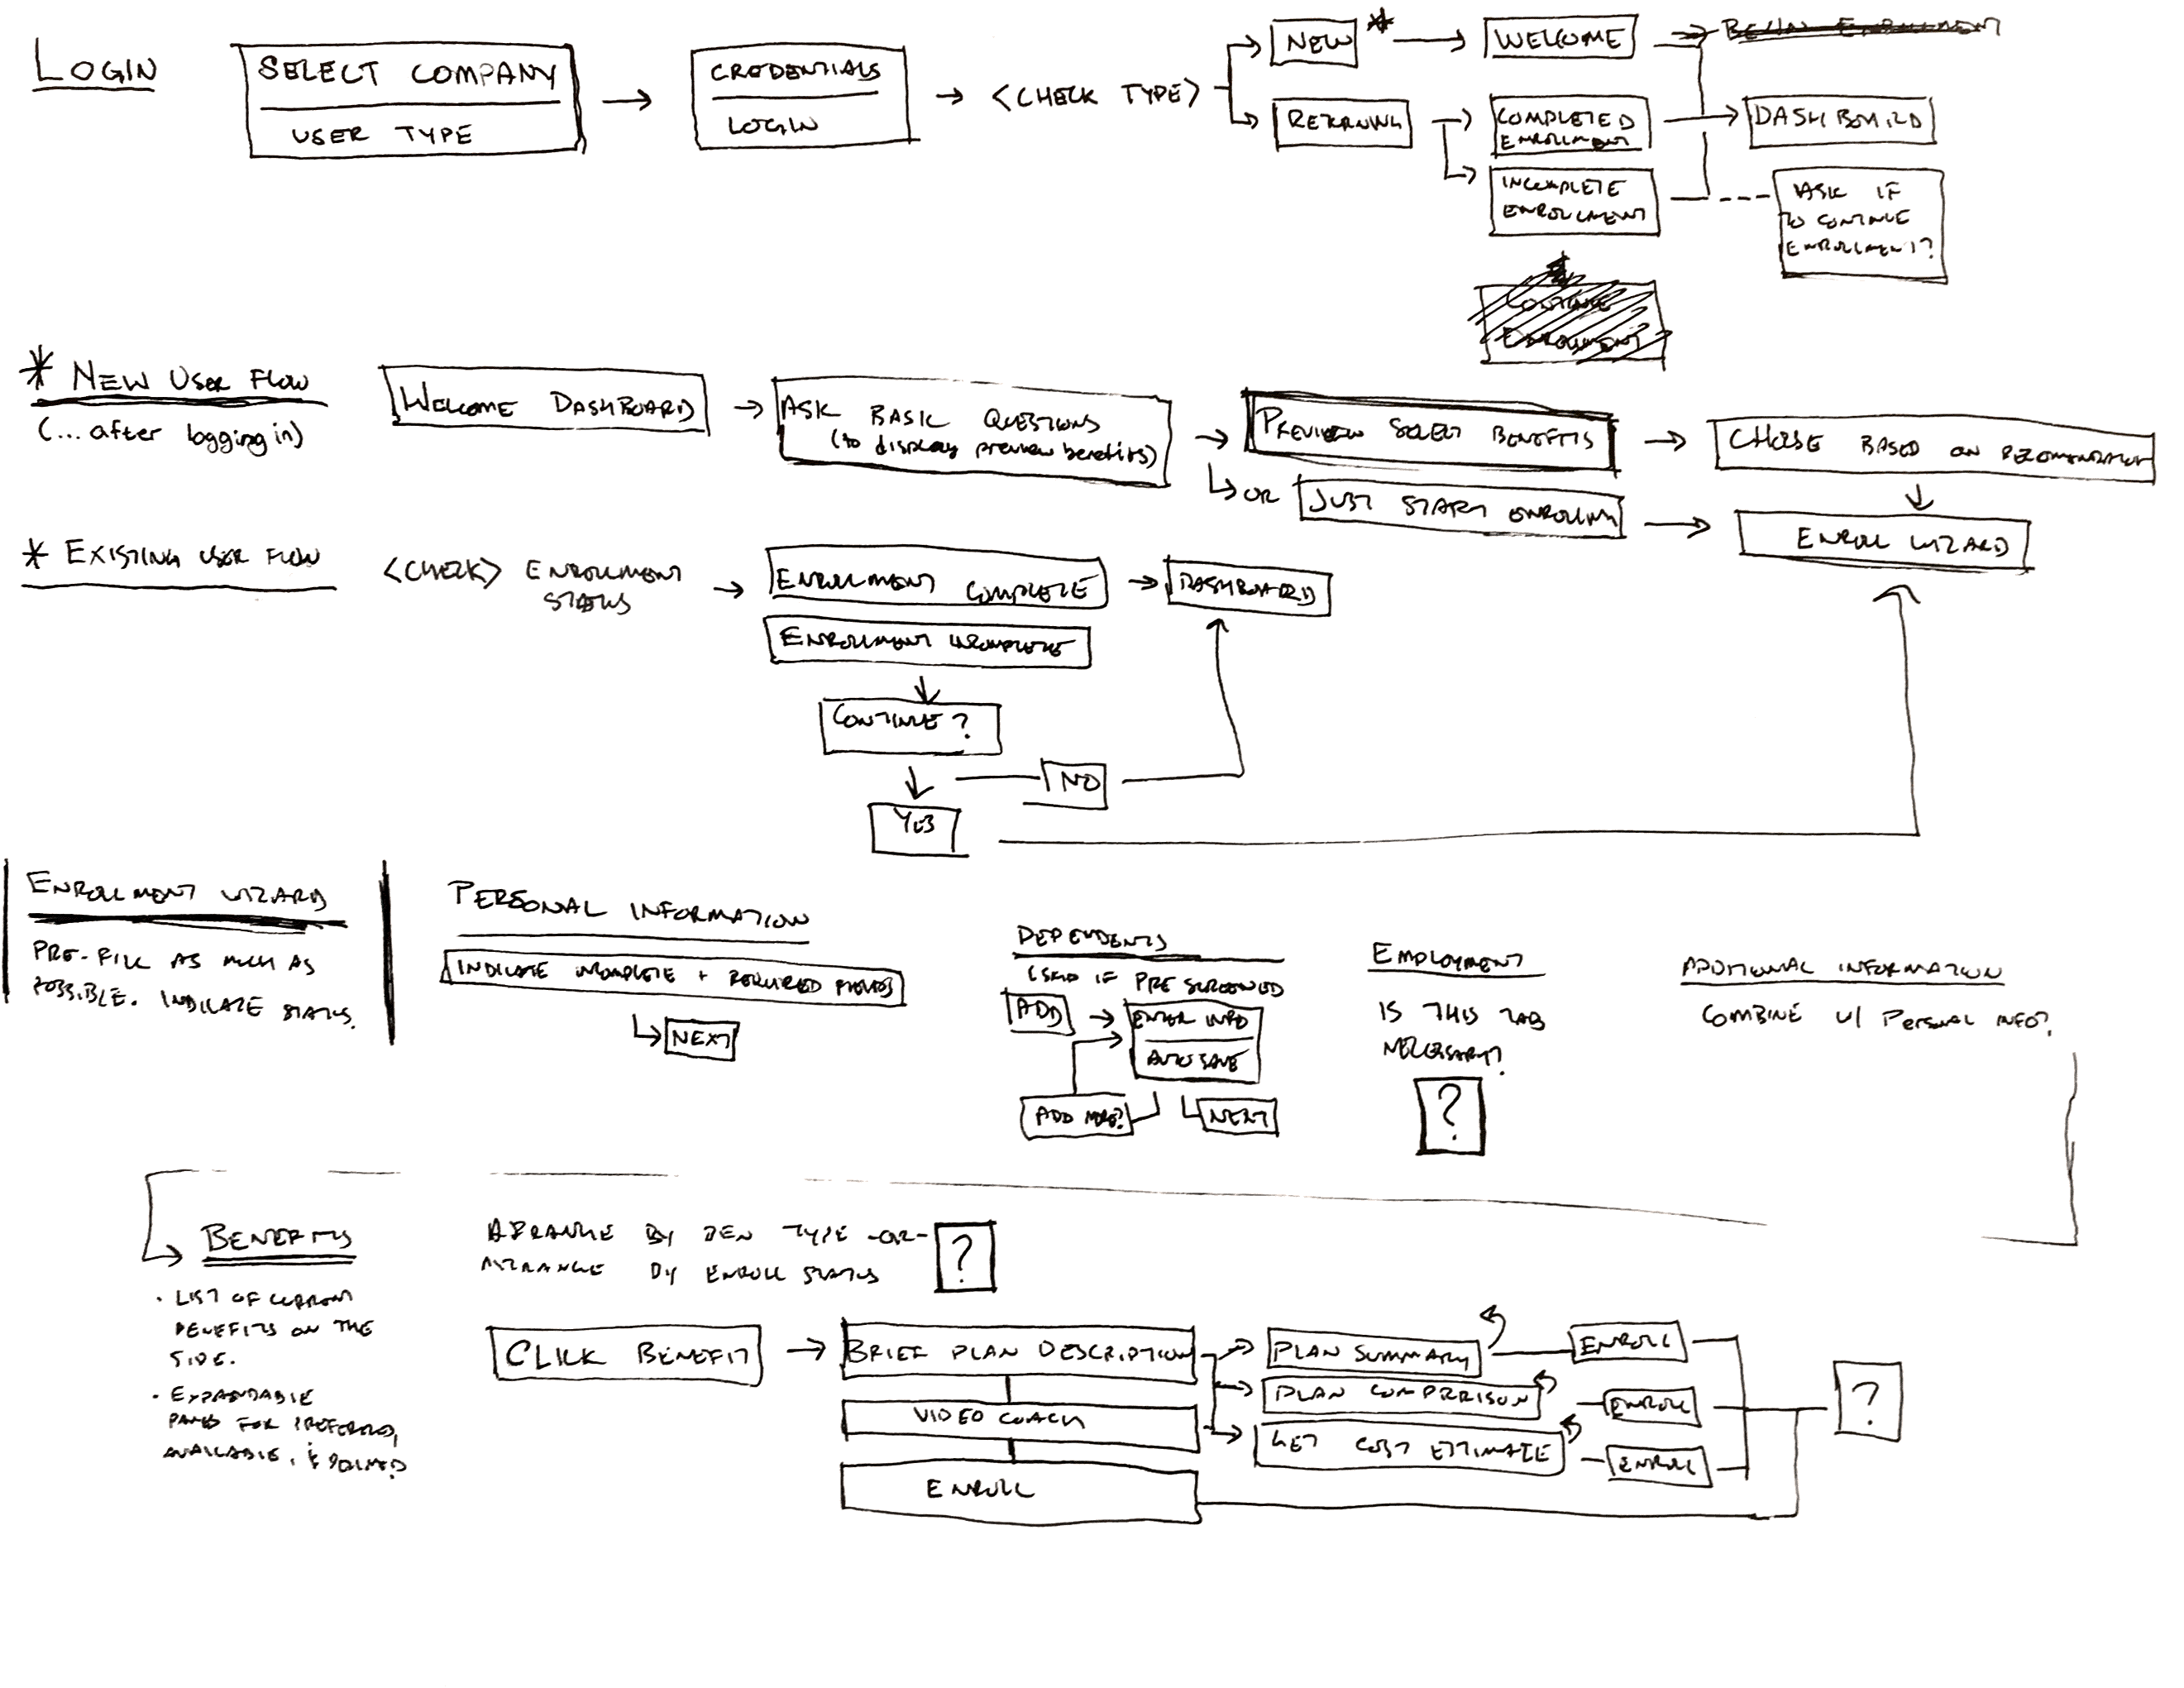 LOGIN
SELECT COMPANY
USER TYPE
CREDENTIALS
LOGIN
<CHECK TYPE>
NEW *
WELCOME
BEGIN ENROLLMENT
RETURNING
COMPLETED
ENROLLMENT
DASHBOARD
INCOMPLETE
ENROLLMENT
ASK IF
TO CONTINUE
ENROLLMENT?
CONTINUE
ENROLLMENT
* NEW USER FLOW
(... after logging in)
WELCOME DASHBOARD
ASK BASIC QUESTIONS
(to display preview benefits)
PREVIEW SELECT BENEFITS
OR JUST START ENROLLING
CHOOSE BASED ON RECOMMENDATION
ENROLL WIZARD
* EXISTING USER FLOW
<CHECK> ENROLLMENT
STATUS
ENROLLMENT COMPLETE
DASHBOARD
ENROLLMENT INCOMPLETE
CONTINUE?
NO
YES
ENROLLMENT WIZARD
PRE-FILL AS MUCH AS
POSSIBLE. INDICATE STATUS.
PERSONAL INFORMATION
INDICATE INCOMPLETE + REQUIRED FIELDS
NEXT
DEPENDENTS
(SKIP IF PRE SCREENED
ADD
ENTER INFO
AUTO SAVE
ADD MORE?
NEXT
EMPLOYMENT
IS THIS TAB
NECESSARY?
?
ADDITIONAL INFORMATION
COMBINE W/ Personal INFO?
BENEFITS
· LIST OF CURRENT
BENEFITS ON THE
SIDE.
· EXPANDABLE
PANES FOR PREFERRED,
AVAILABLE, &
ARRANGE BY BEN TYPE -OR-
ARRANGE BY ENROLL STATUS
?
CLICK BENEFIT
BRIEF PLAN DESCRIPTION
VIDEO COACH
ENROLL
PLAN SUMMARY
ENROLL
PLAN COMPARISON
ENROLL
GET COST ESTIMATE
ENROLL
?